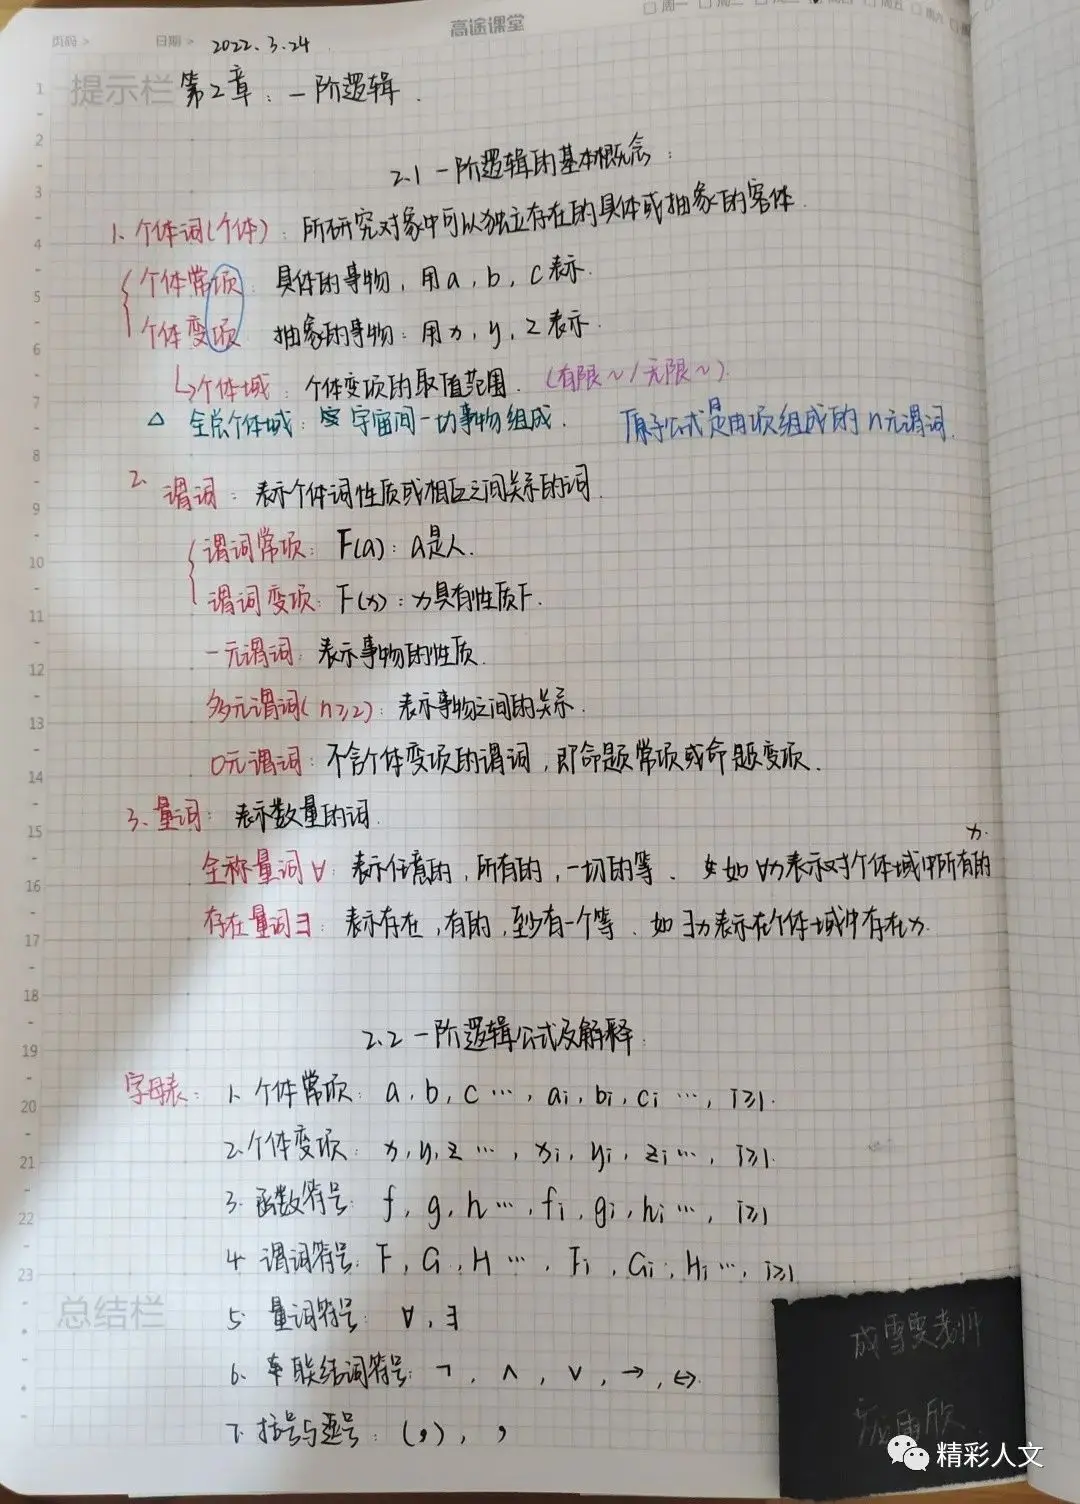 高途课堂
周一 周二 周三 周四 周五 周六
页码 > 日期 > 2022.3.24
提示栏 第2章：一阶逻辑.
2.1 一阶逻辑的基本概念：
1、个体词(个体)：所研究对象中可以独立存在的具体或抽象的客体.
个体常项：具体的事物，用a，b，c表示.
个体变项 抽象的事物：用x，y，z表示.
↳个体域：个体变项的取值范围. (有限~/无限~).
△ 全总个体域：宇宙间一切事物组成. 原子公式是由项组成的n元谓词.
2. 谓词：表示个体词性质或相互之间关系的词.
谓词常项：F(a)：a是人.
谓词变项：F(x)：x具有性质F.
一元谓词：表示事物的性质.
多元谓词(n≥2)：表示事物之间的关系.
0元谓词：不含个体变项的谓词，即命题常项或命题变项.
3、量词：表示数量的词.
全称量词∀：表示任意的，所有的，一切的等、如∀x表示对个体域中所有的x.
存在量词∃：表示存在，有的，至少有一个等、如∃x表示在个体域中存在x.
2.2 一阶逻辑公式及解释：
字母表：1、个体常项：a，b，c…，ai，bi，ci…，i≥1.
2.个体变项：x，y，z…，xi，yi，zi…，i≥1.
3. 函数符号：f，g，h…，fi，gi，hi…，i≥1
4. 谓词符号：F，G，H…，Fi，Gi，Hi…，i≥1
5. 量词符号：∀，∃
总结栏
6. 联结词符号：¬，∧，∨，→，↔.
7. 括号与逗号：(，)，，
1
2
3
4
5
6
7
8
9
10
11
12
13
14
15
16
17
18
19
20
21
22
23
精彩人文